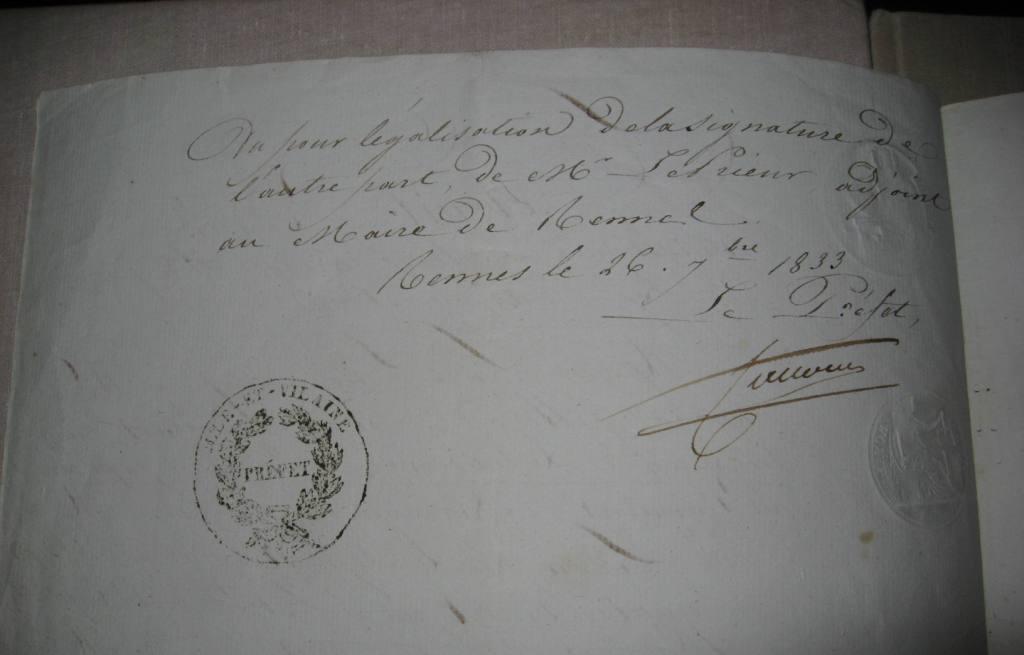 Vu pour légalisation de la signature de
l'autre part, de Mr LePrieur adjoint
au Maire de Rennes
Rennes le 26. 7bre 1833
Le Préfet,
ILLE-ET-VILAINE
PRÉFET